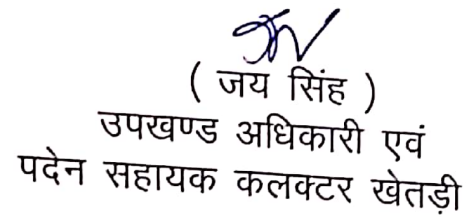 ( जय सिंह )
उपखण्ड अधिकारी एवं
पदेन सहायक कलक्टर खेतड़ी